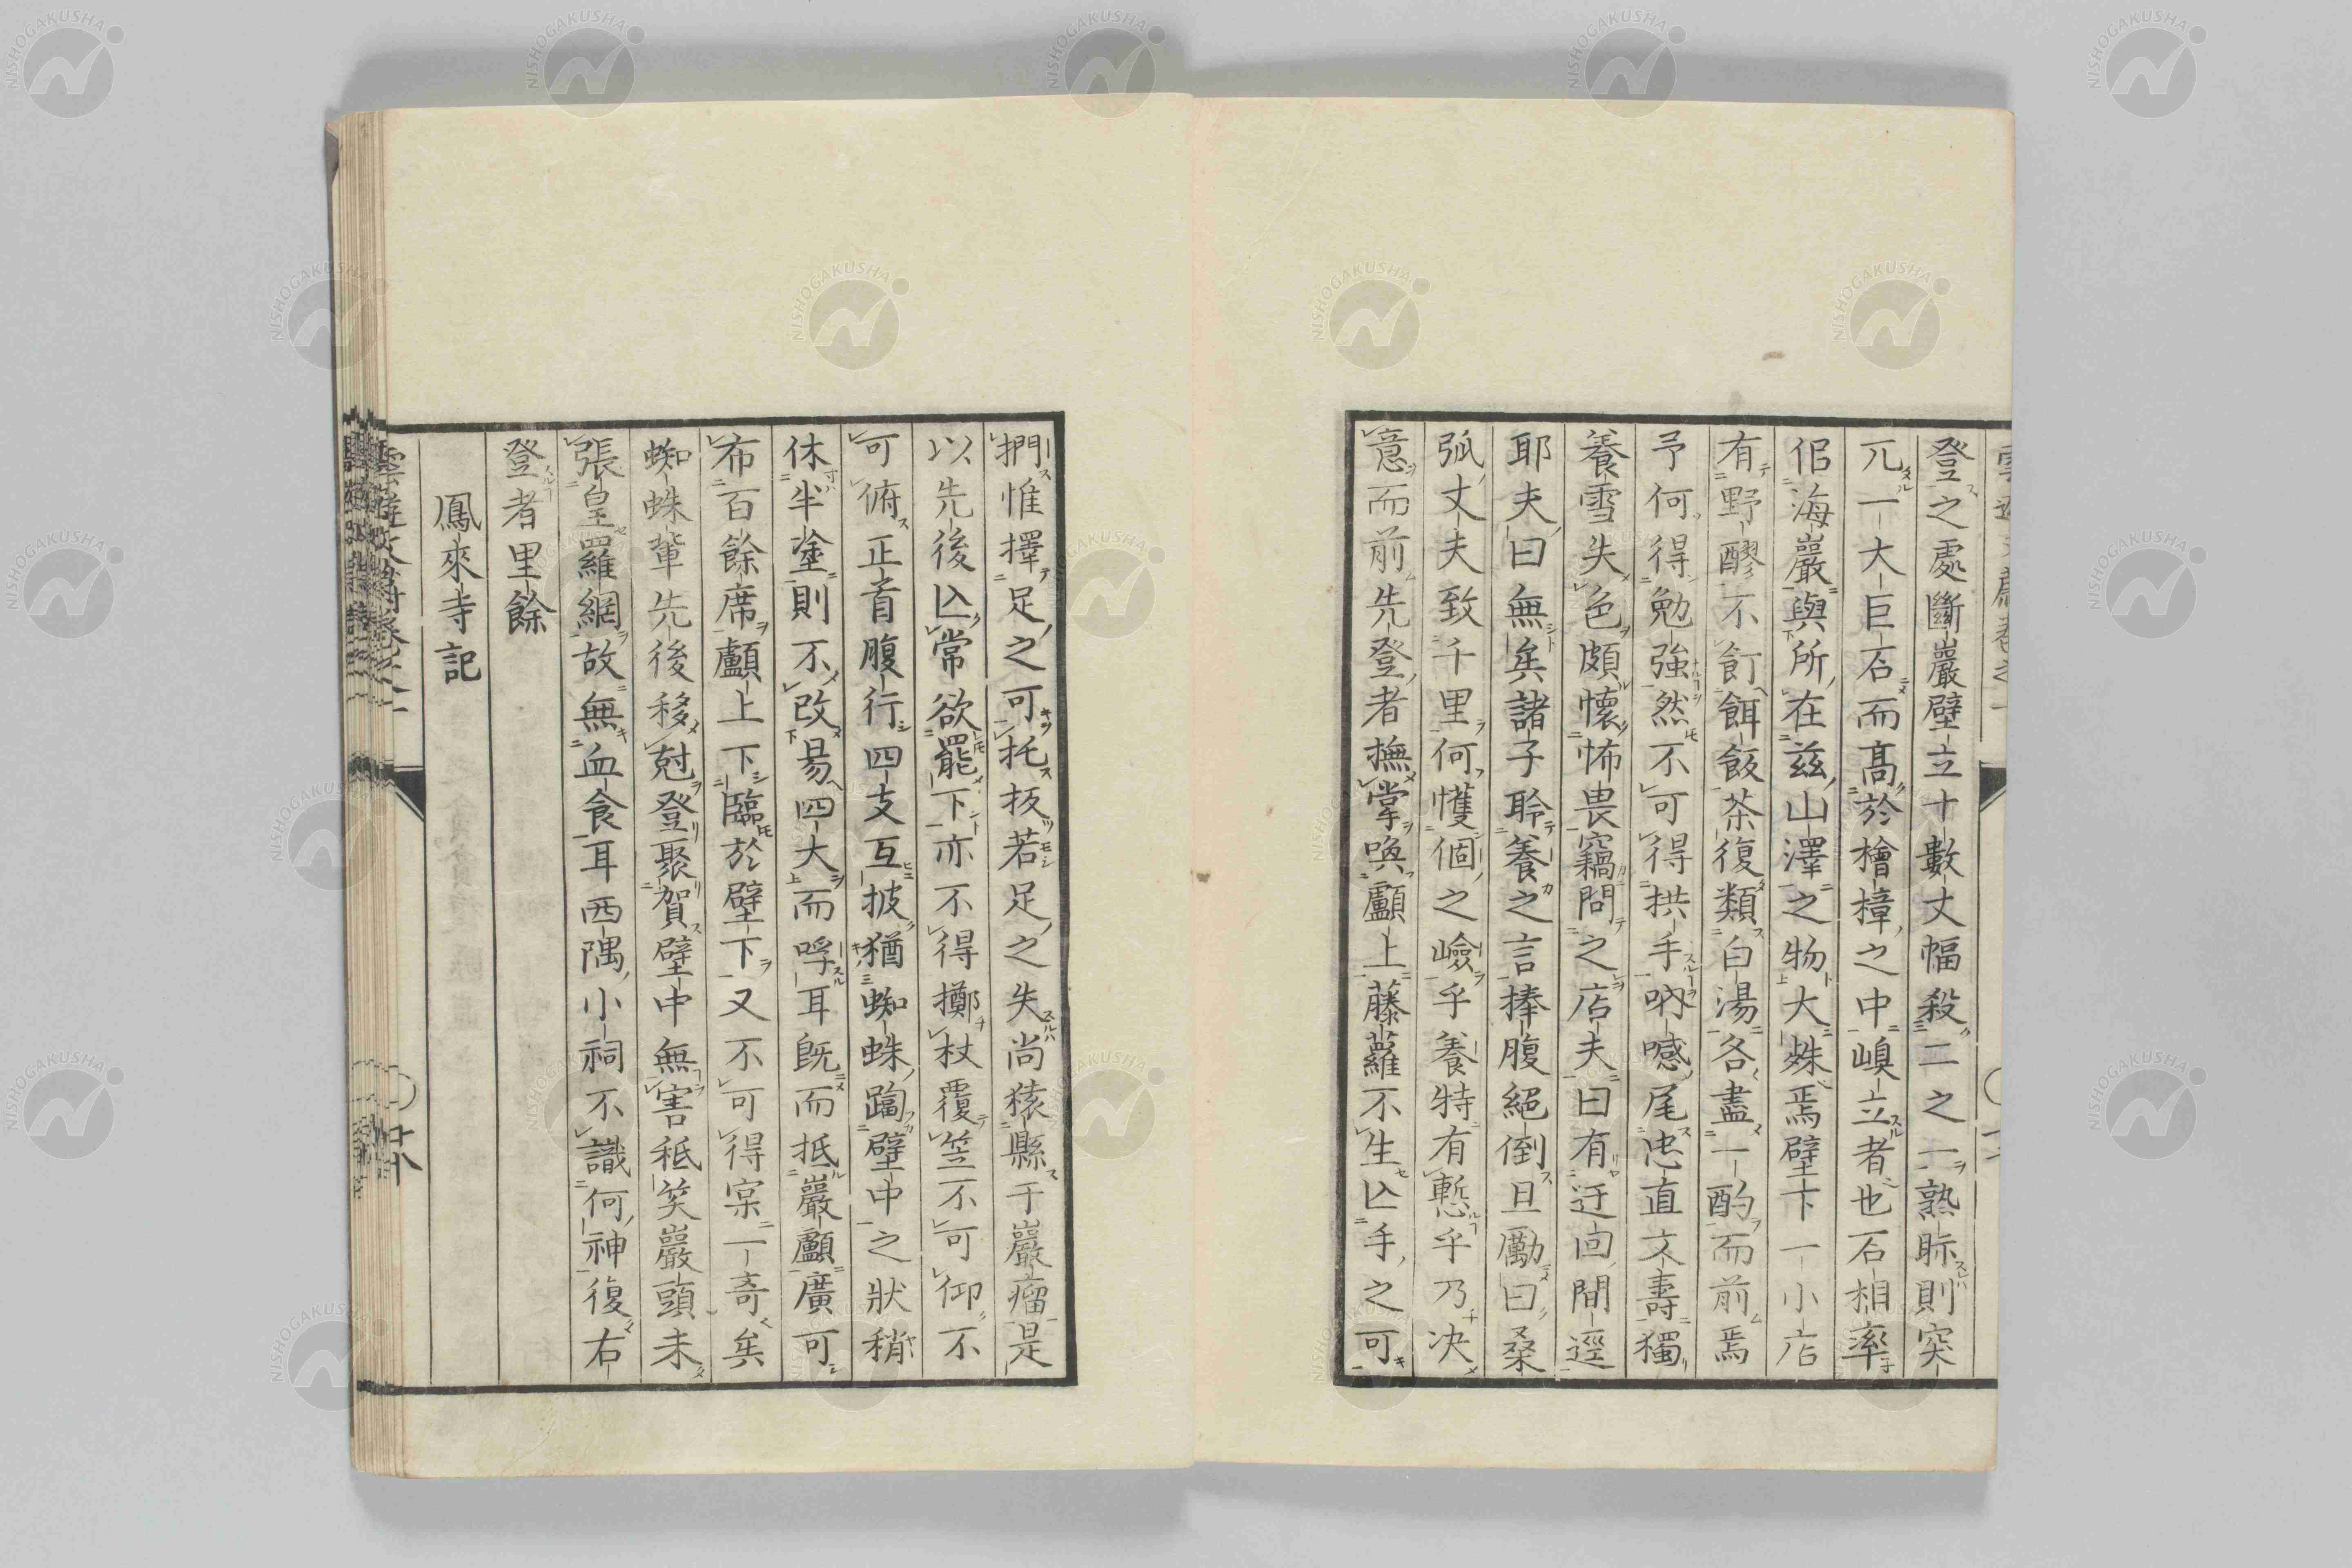 登之處斷巖壁立十數丈幅殺二之一熟眎則突
兀一大巨石而高於檜樟之中嵲立者也石相率
侶海巖與所在茲山澤之物大殊焉壁下一小店
有野醪不飣餌飯茶復類白湯各盡一酌而前焉
予何得勉強然不可得拱手吶喊尾忠直文壽獨
養雪失色頗懷怖畏竊問之店夫曰有迂回間逕
耶夫曰無矣諸子聆養之言捧腹絕倒且勵曰桑
弧丈夫致千里何懽個之嶮乎養特有慙乎乃决
意而前先登者撫掌喚顱上藤蘿不生亾手之可
捫惟擇足之可托扳若足之失尚猿縣于巖瘤是
以先後亾常欲罷下亦不得擲杖覆笠不可仰不
可俯正首腹行四支互披猶蜘蛛蹋壁中之狀稍
休半塗則不改易四大而呼耳既而抵巖顱廣可
布百餘席顱上下臨於壁下又不可得寀一奇矣
蜘蛛輩先後移尅登聚賀壁中無害秪笑巖頭未
張皇羅網故無血食耳西隅小祠不識何神復右
登者里餘
鳳來寺記
NISHOGAKUSHA